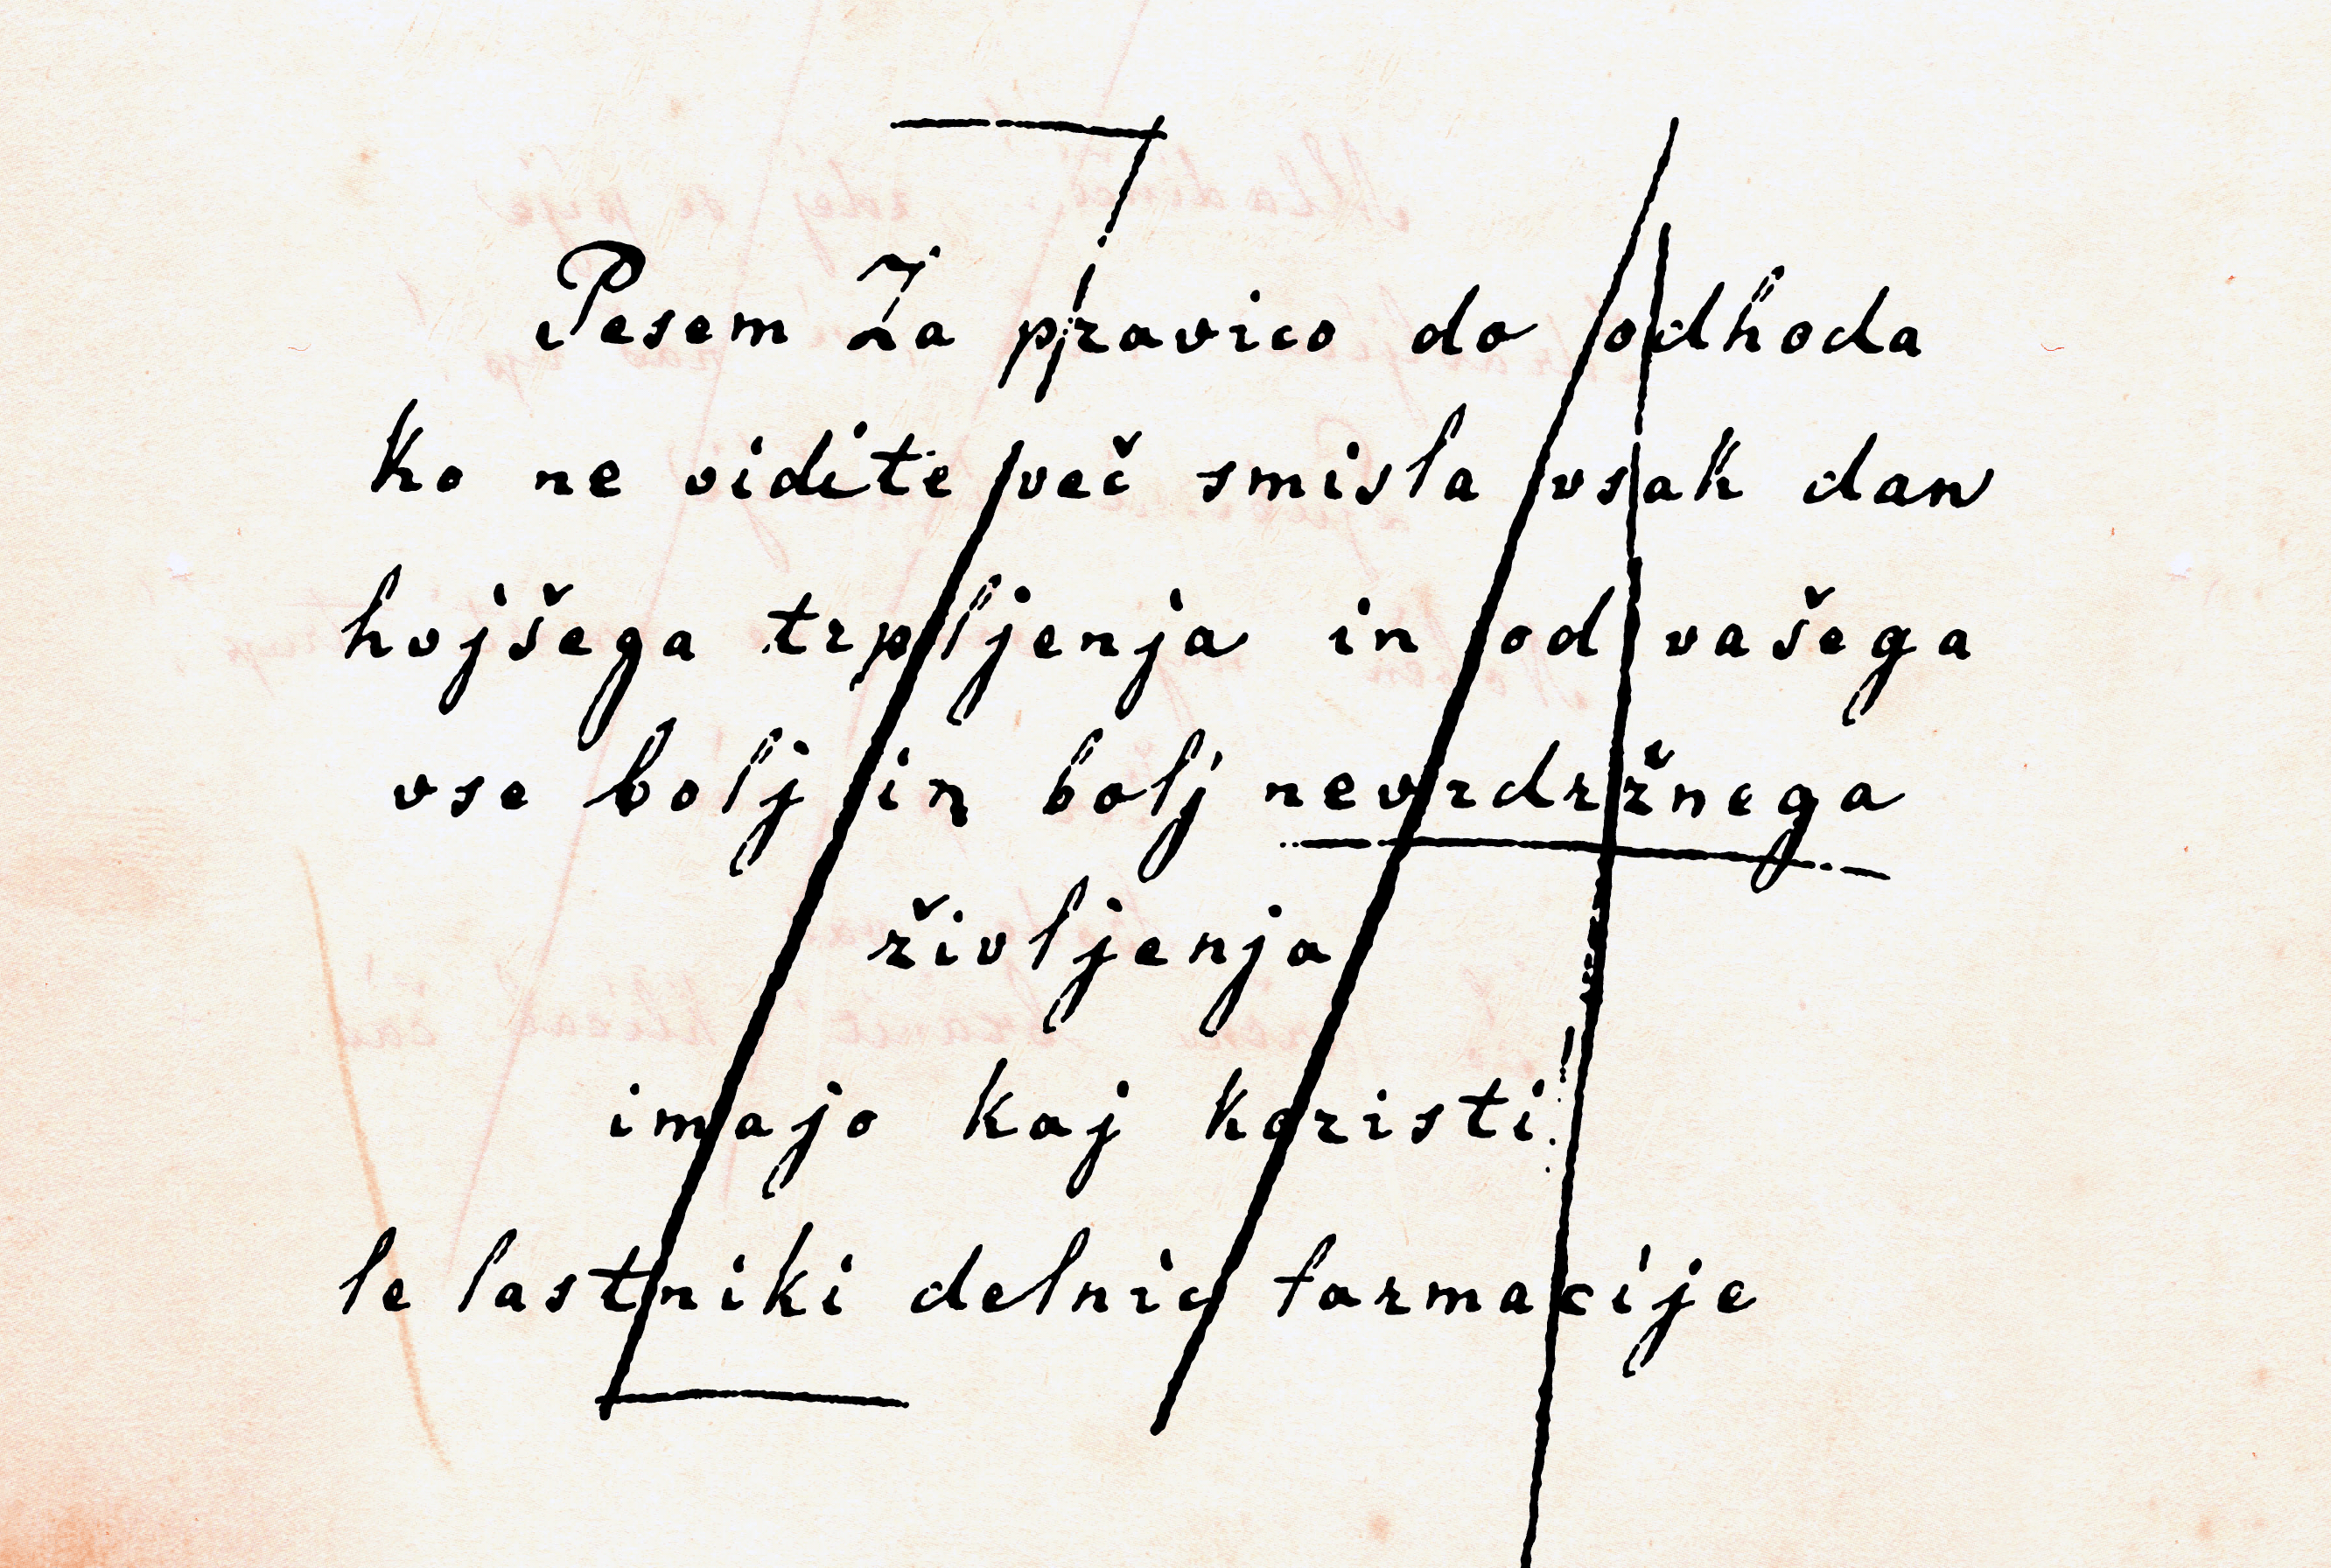 Pesem Za pravico do odhoda
Ko ne vidite več smisla vsak dan
hujšega trpljenja in od vašega
vse bolj in bolj nevzdržnega
življenja
imajo kaj koristi!
le lastniki delnic farmacije